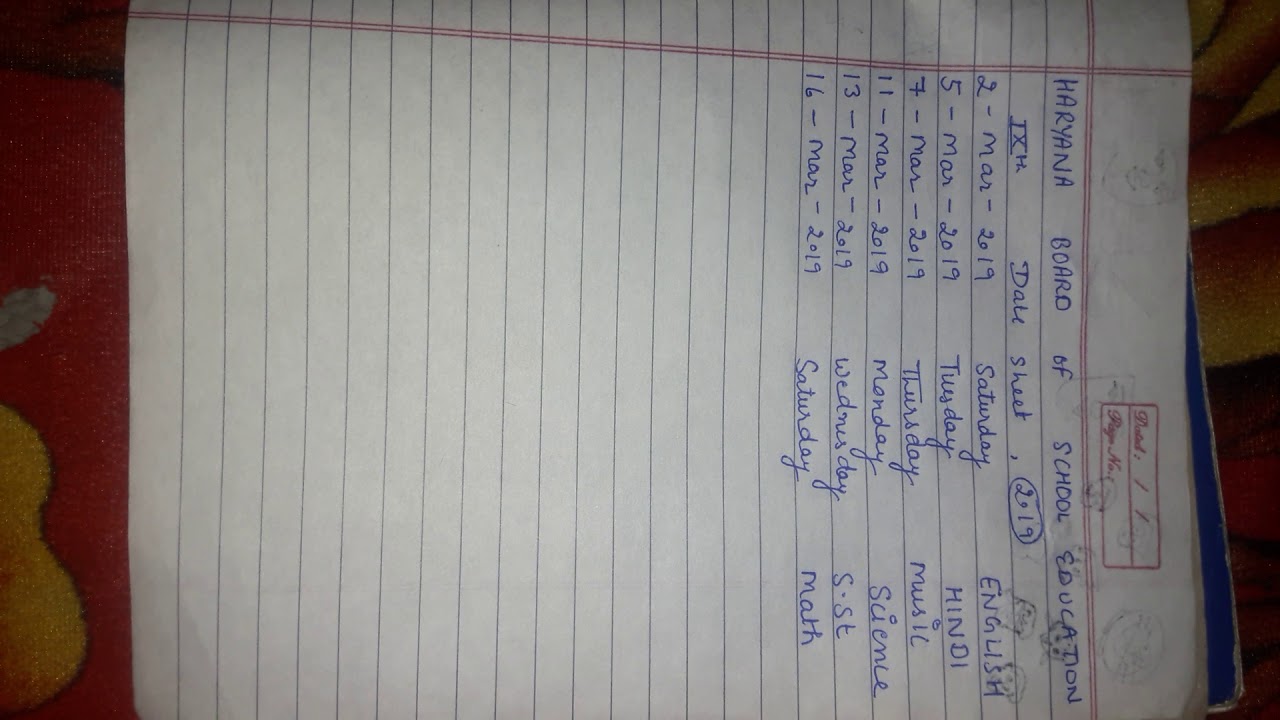 Date: / /
Page No.:
HARYANA BOARD of SCHOOL EDUCATION
IXth Date Sheet, 2019
2 - Mar - 2019 Saturday ENGLISH
5 - Mar - 2019 Tuesday HINDI
7 - Mar - 2019 Thursday Music
11 - Mar - 2019 Monday Science
13 - Mar - 2019 Wednesday S.St
16 - Mar - 2019 Saturday Math